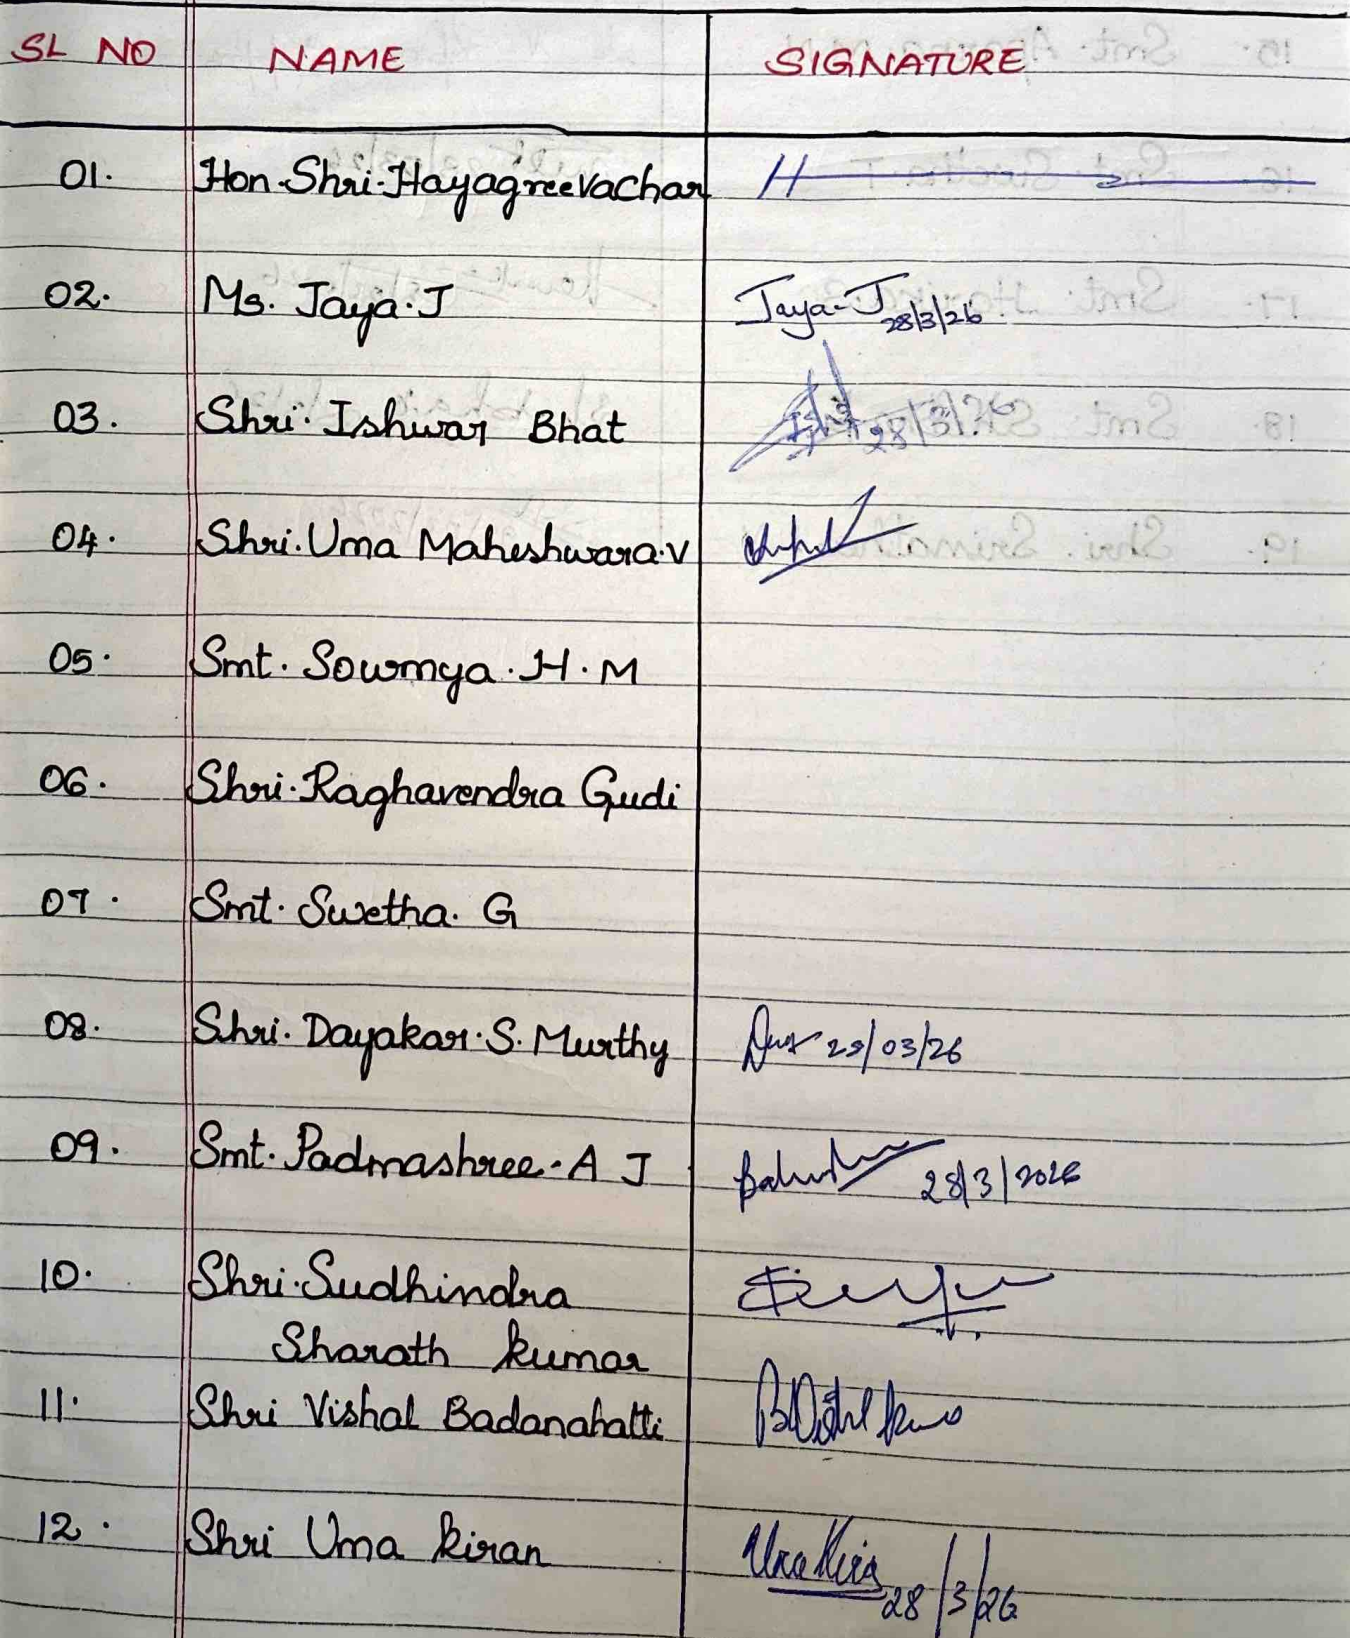 SL NO NAME SIGNATURE
01. Hon. Shri. Hayagreevachar H
02. Ms. Jaya. J Jaya. J 28/3/26
03. Shri. Ishwar Bhat 28/3/26
04. Shri. Uma Maheshwara. V
05. Smt. Sowmya. H. M
06. Shri. Raghavendra Gudi
07. Smt. Swetha. G
08. Shri. Dayakar. S. Murthy 28/03/26
09. Smt. Padmashree. A J 28/3/2026
10. Shri. Sudhindra
Sharath kumar
11. Shri Vishal Badanahatti
12. Shri Uma kiran Uma Kiran 28/3/26